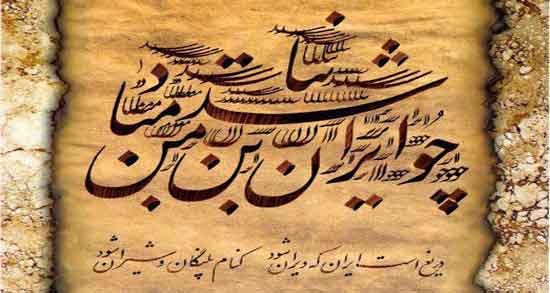 چو ایران نباشد تن من مباد
دریغ است ایران که ویران شود کنام پلنگان و شیران شود